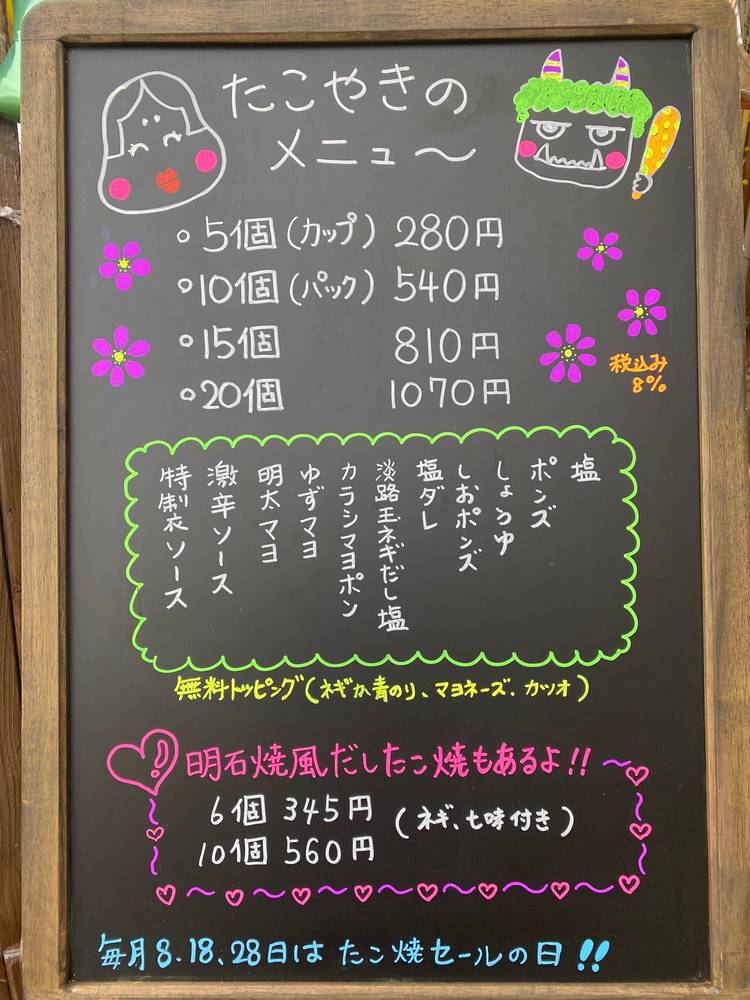 たこやきの
メニュ〜
○5個(カップ) 280円
○10個(パック) 540円
○15個 810円
○20個 1070円
税込み
8%
塩
ポンズ
しょうゆ
しおポンズ
塩ダレ
淡路玉ネギだし塩
カラシマヨポン
ゆずマヨ
明太マヨ
激辛ソース
特製ソース
無料トッピング(ネギか青のり、マヨネーズ、カツオ)
明石焼風だしたこ焼もあるよ!!
6個 345円
10個 560円
(ネギ、七味付き)
毎月8.18、28日は たこ焼セールの日!!